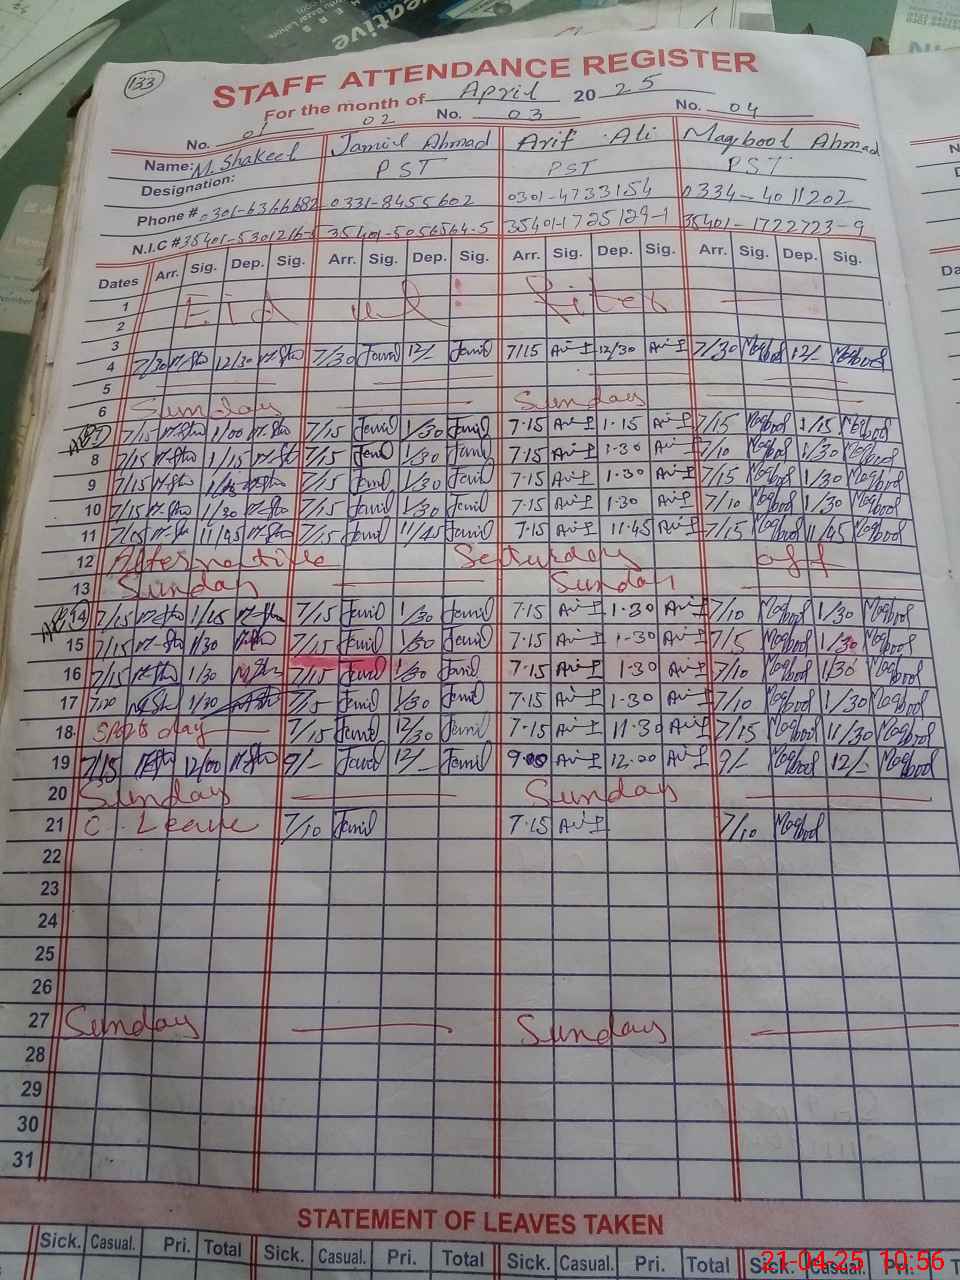 133
STAFF ATTENDANCE REGISTER
For the month of April 2025
No. 01 02 No. 03 No. 04
Name: M. Shakeel Jamil Ahmad Arif Ali Maqbool Ahmad
Designation: PST PST PST
Phone # 0301-6366682 0331-8455602 0301-4733154 0334-4011202
N.I.C # 35401-5056564-5 35401-1725129-1 35401-1722723-9
Dates Arr. Sig. Dep. Sig. Arr. Sig. Dep. Sig. Arr. Sig. Dep. Sig. Arr. Sig. Dep. Sig.
1 Eid ul fiter
2
3
4 7/30 M.Sha 12/30 M.Sha 7/30 Jamil 12/- Jamil 7/15 Arif 12/30 Arif 7/30 Maqbool 12/- Maqbool
5
6 Sunday Sunday
7 7/15 M.Sha 1/00 M.Sha 7/15 Jamil 1/30 Jamil 7.15 Arif 1.15 Arif 7/15 Maqbool 1/15 Maqbool
8 7/15 M.Sha 1/15 M.Sha 7/15 Jamil 1/30 Jamil 7.15 Arif 1.30 Arif 7/10 Maqbool 1/30 Maqbool
9 7/15 M.Sha M.Sha 7/15 Jamil 1/30 Jamil 7.15 Arif 1.30 Arif 7/15 Maqbool 1/30 Maqbool
10 7/15 M.Sha 1/30 M.Sha 7/15 Jamil 1/30 Jamil 7.15 Arif 1.30 Arif 7/10 Maqbool 1/30 Maqbool
11 7/05 M.Sha 11/45 M.Sha 7/15 Jamil 11/45 Jamil 7.15 Arif 11.45 Arif 7/15 Maqbool 11/45 Maqbool
12 Alternative Seturday off
13 Sunday Sunday
14 7/15 M.Sha 1/15 M.Sha 7/15 Jamil 1/30 Jamil 7.15 Arif 1.30 Arif 7/10 Maqbool 1/30 Maqbool
15 7/15 M.Sha 1/30 M.Sha 7/15 Jamil 1/30 Jamil 7.15 Arif 1.30 Arif 7/5 Maqbool 1/30 Maqbool
16 7/15 M.Sha 1/30 M.Sha 7/15 Jamil 1/30 Jamil 7.15 Arif 1.30 Arif 7/10 Maqbool 1/30 Maqbool
17 7/20 M.Sha 1/30 7/15 Jamil 1/30 Jamil 7.15 Arif 1.30 Arif 7/10 Maqbool 1/30 Maqbool
18 Sports day 7/15 Jamil 12/30 Jamil 7.15 Arif 11.30 Arif 7/15 Maqbool 11/30 Maqbool
19 7/15 M.Sha 12/00 M.Sha 9/- Jamil 12/- Jamil 9.00 Arif 12.00 Arif 9/- Maqbool 12/- Maqbool
20 Sunday Sunday
21 C. Leave 7/10 Jamil 7.15 Arif 7/10 Maqbool
22
23
24
25
26
27 Sunday Sunday
28
29
30
31
STATEMENT OF LEAVES TAKEN
Sick. Casual. Pri. Total Sick. Casual. Pri. Total Sick. Casual. Pri. Total Sick. Casual. Pri.
21-04-25 10:56